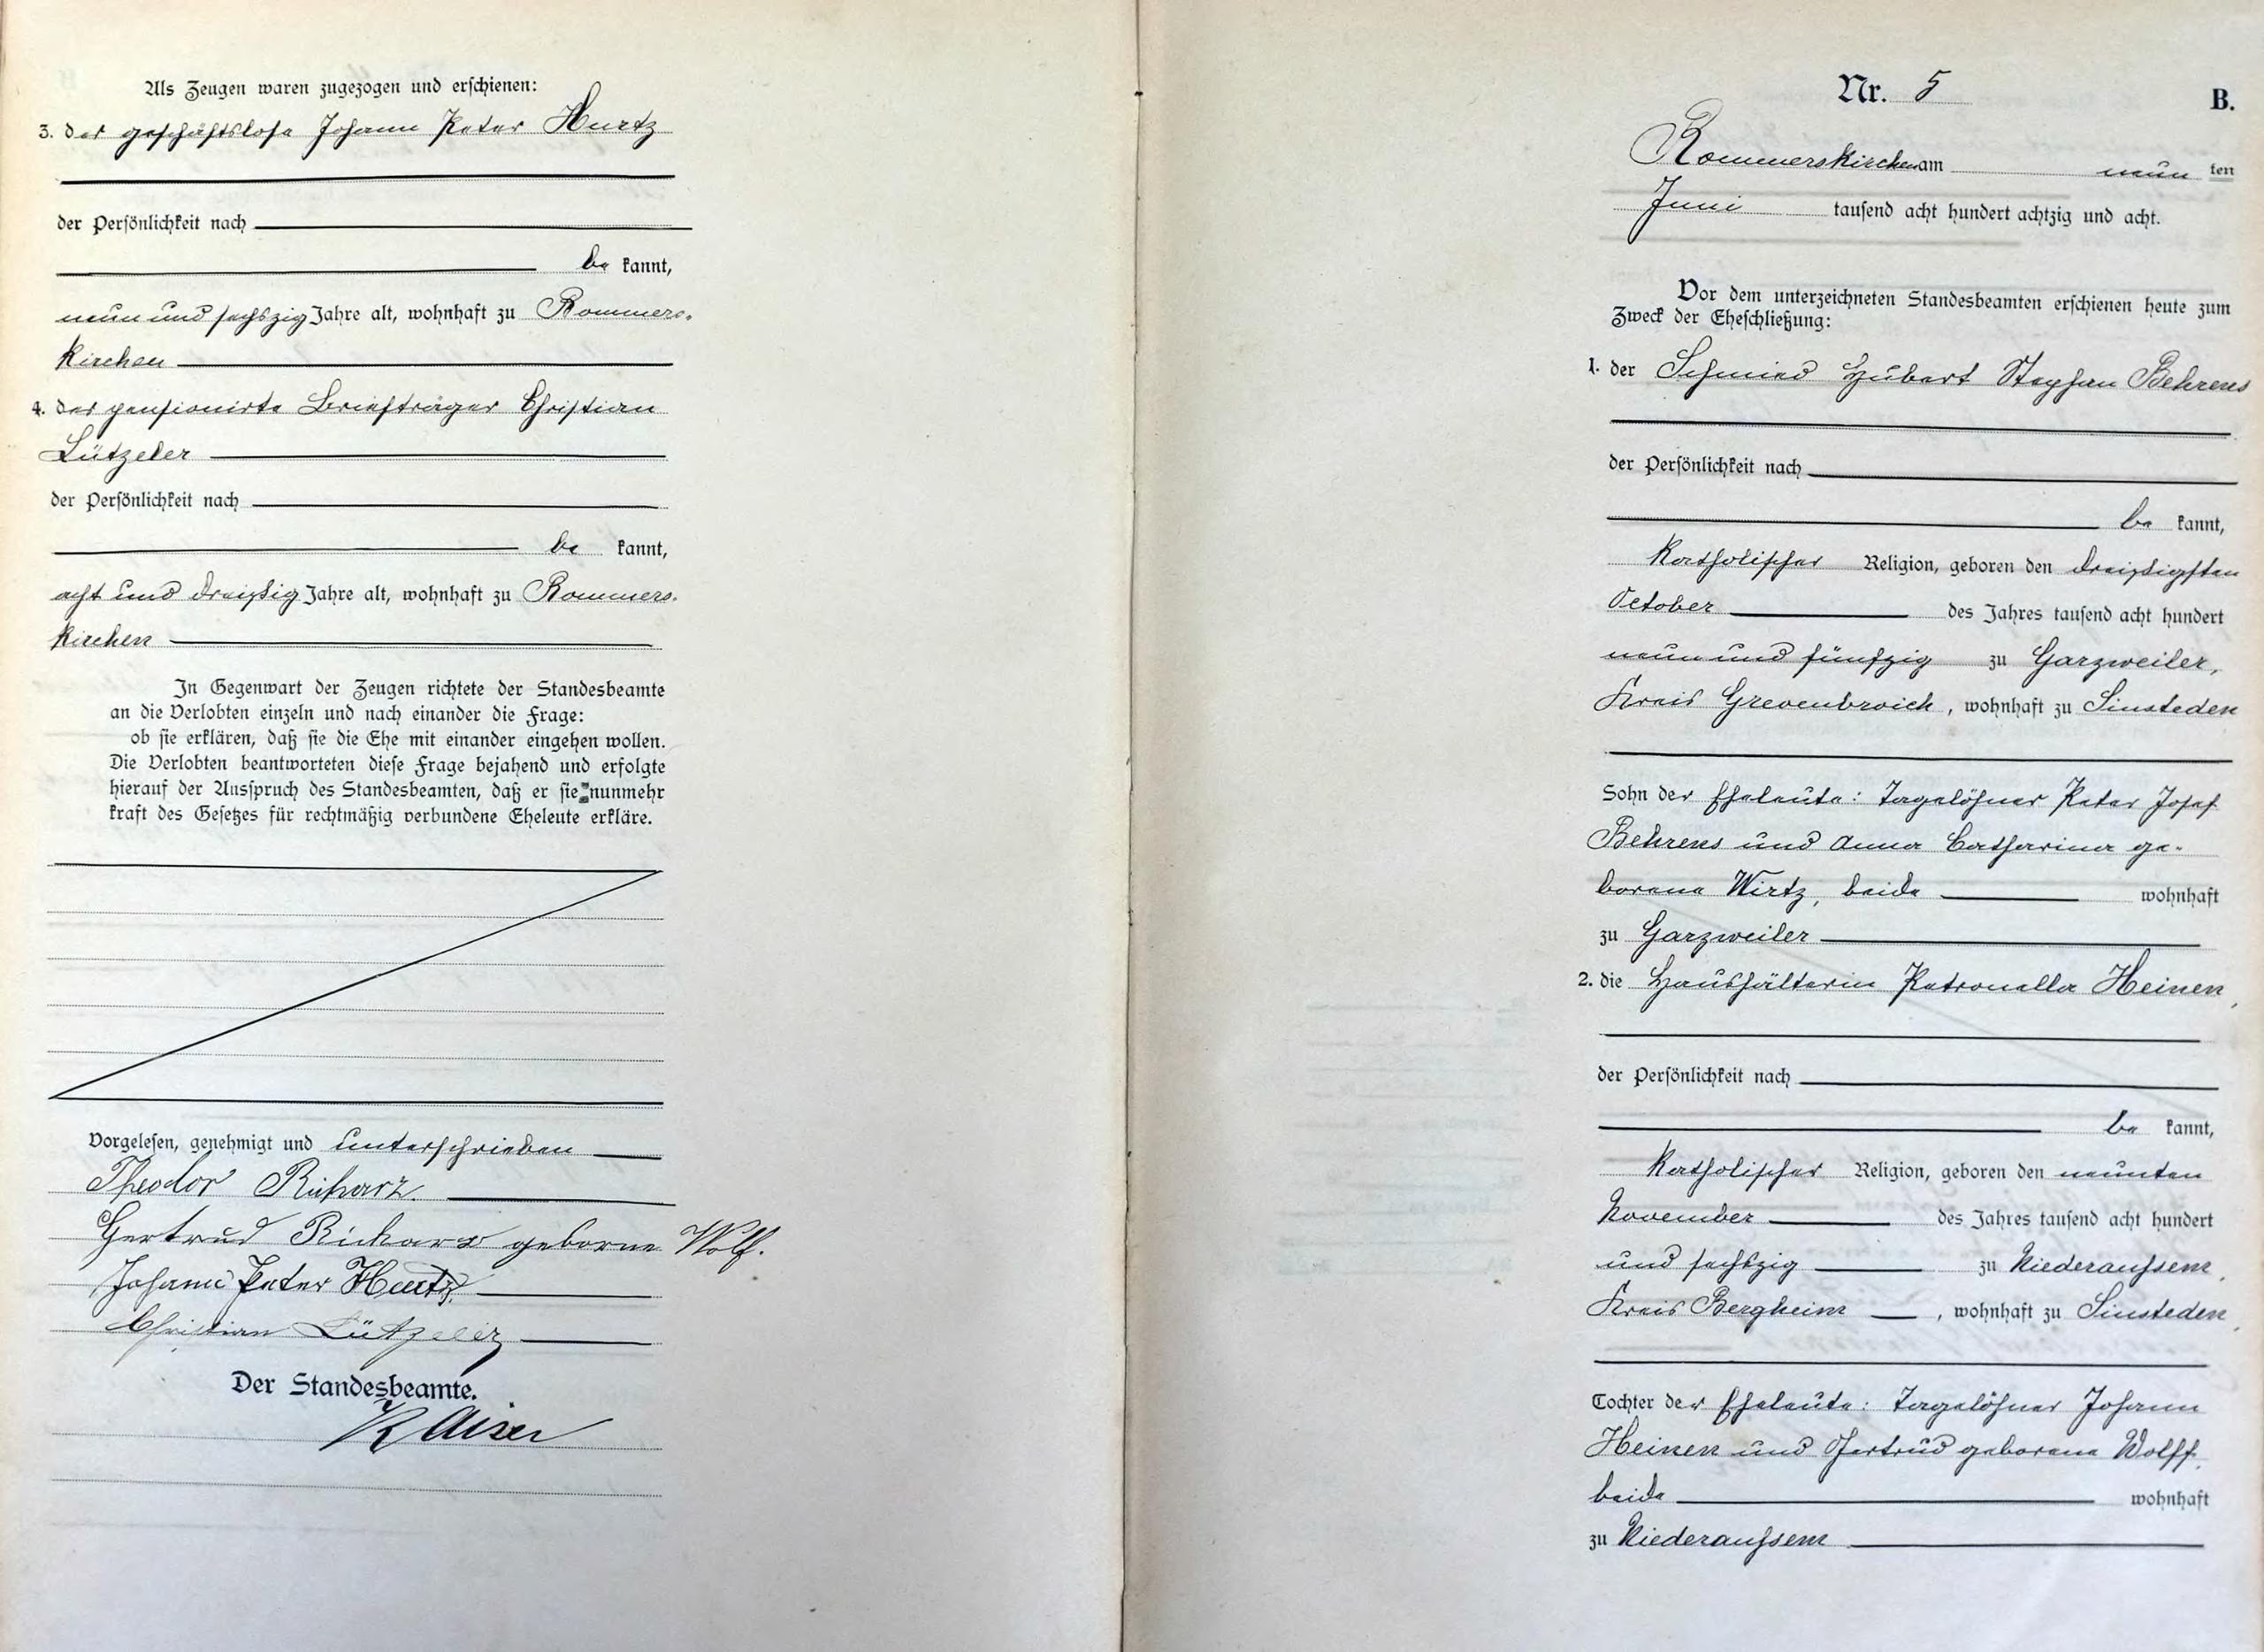 Als Zeugen waren zugezogen und erschienen:
3. der geschäftslose Johann Peter Hurtz
der Persönlichkeit nach
be kannt,
neun und sechszig Jahre alt, wohnhaft zu Rommers-
kirchen
4. der pensionirte Briefträger Christian
Lützeler
der Persönlichkeit nach
be kannt,
acht und dreißig Jahre alt, wohnhaft zu Rommers-
kirchen
In Gegenwart der Zeugen richtete der Standesbeamte
an die Verlobten einzeln und nach einander die Frage:
ob sie erklären, daß sie die Ehe mit einander eingehen wollen.
Die Verlobten beantworteten diese Frage bejahend und erfolgte
hierauf der Ausspruch des Standesbeamten, daß er sie nunmehr
kraft des Gesetzes für rechtmäßig verbundene Eheleute erkläre.
Vorgelesen, genehmigt und unterschrieben
Theodor Richarz.
Gertrud Richarz geborne Wolf.
Johann Peter Hurtz
Christian Lützeler
Der Standesbeamte.
Kaiser
Nr. 5
B.
Rommerskirchen am neun ten
Juni tausend acht hundert achtzig und acht.
Vor dem unterzeichneten Standesbeamten erschienen heute zum
Zweck der Eheschließung:
1. der Schmied Hubert Stephan Behrens
der Persönlichkeit nach
be kannt,
katholischer Religion, geboren den dreißigsten
October des Jahres tausend acht hundert
neun und fünfzig zu Garzweiler,
Kreis Grevenbroich, wohnhaft zu Sinsteden
Sohn der Eheleute: Tagelöhner Peter Josef
Behrens und Anna Catharina ge-
borene Wirtz, beide wohnhaft
zu Garzweiler
2. die Haushälterin Petronella Heinen,
der Persönlichkeit nach
be kannt,
katholischer Religion, geboren den neunten
November des Jahres tausend acht hundert
und sechszig zu Niederaußem,
Kreis Bergheim, wohnhaft zu Sinsteden,
Tochter der Eheleute: Tagelöhner Johann
Heinen und Gertrud geborene Wolff,
beide wohnhaft
zu Niederaußem